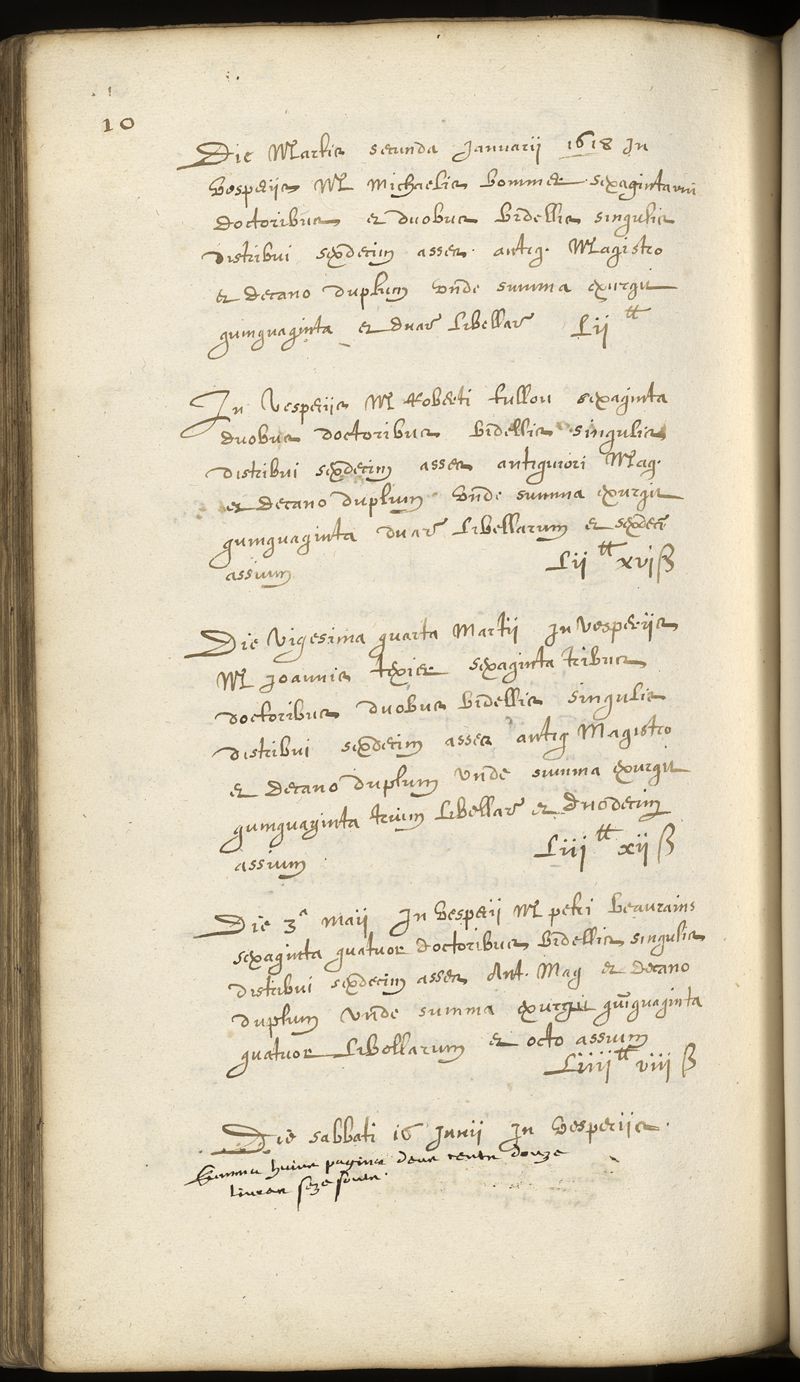 10
Die Martis secunda Januarii 1618 In
Vesperiis M Michaelis Bommer sexaginta
doctoribus et duobus bidellis singulis
distribui sexdecim asses antiq. Magistro
et decano duplum unde summa exurgit
quinquaginta et duar libellar Lii ₶
In Vesperiis M Roberti tullou sexaginta
duobus doctoribus bidellis singulis
distribui sexdecim asses antiquiori Mag.
et decano duplum unde summa exurgit
quinquaginta duar libellarum et sexdeci
assium Lii ₶ xvi ß
Die vigesima quarta Martii In Vesperiis
M Joannis texier sexaginta tribus
doctoribus duobus bidellis singulis
distribui sexdecim asses antiq Magistro
et decano duplum unde summa exurgit
quinquaginta trium libellar et duodecim
assium Liii ₶ xii ß
Die 3ᵃ maii In Vesperii M petri Beaurains
sexaginta quatuor doctoribus bidellis singulis
distribui sexdecim asses Ant. Mag et decano
duplum unde summa exurgit quiquaginta
quatuor libellarum et octo assium
Liiii ₶ viii ß
Die sabbati 16 Junii In Vesperiis.
Summa huius pagina deux cents douze
livres seze soulz